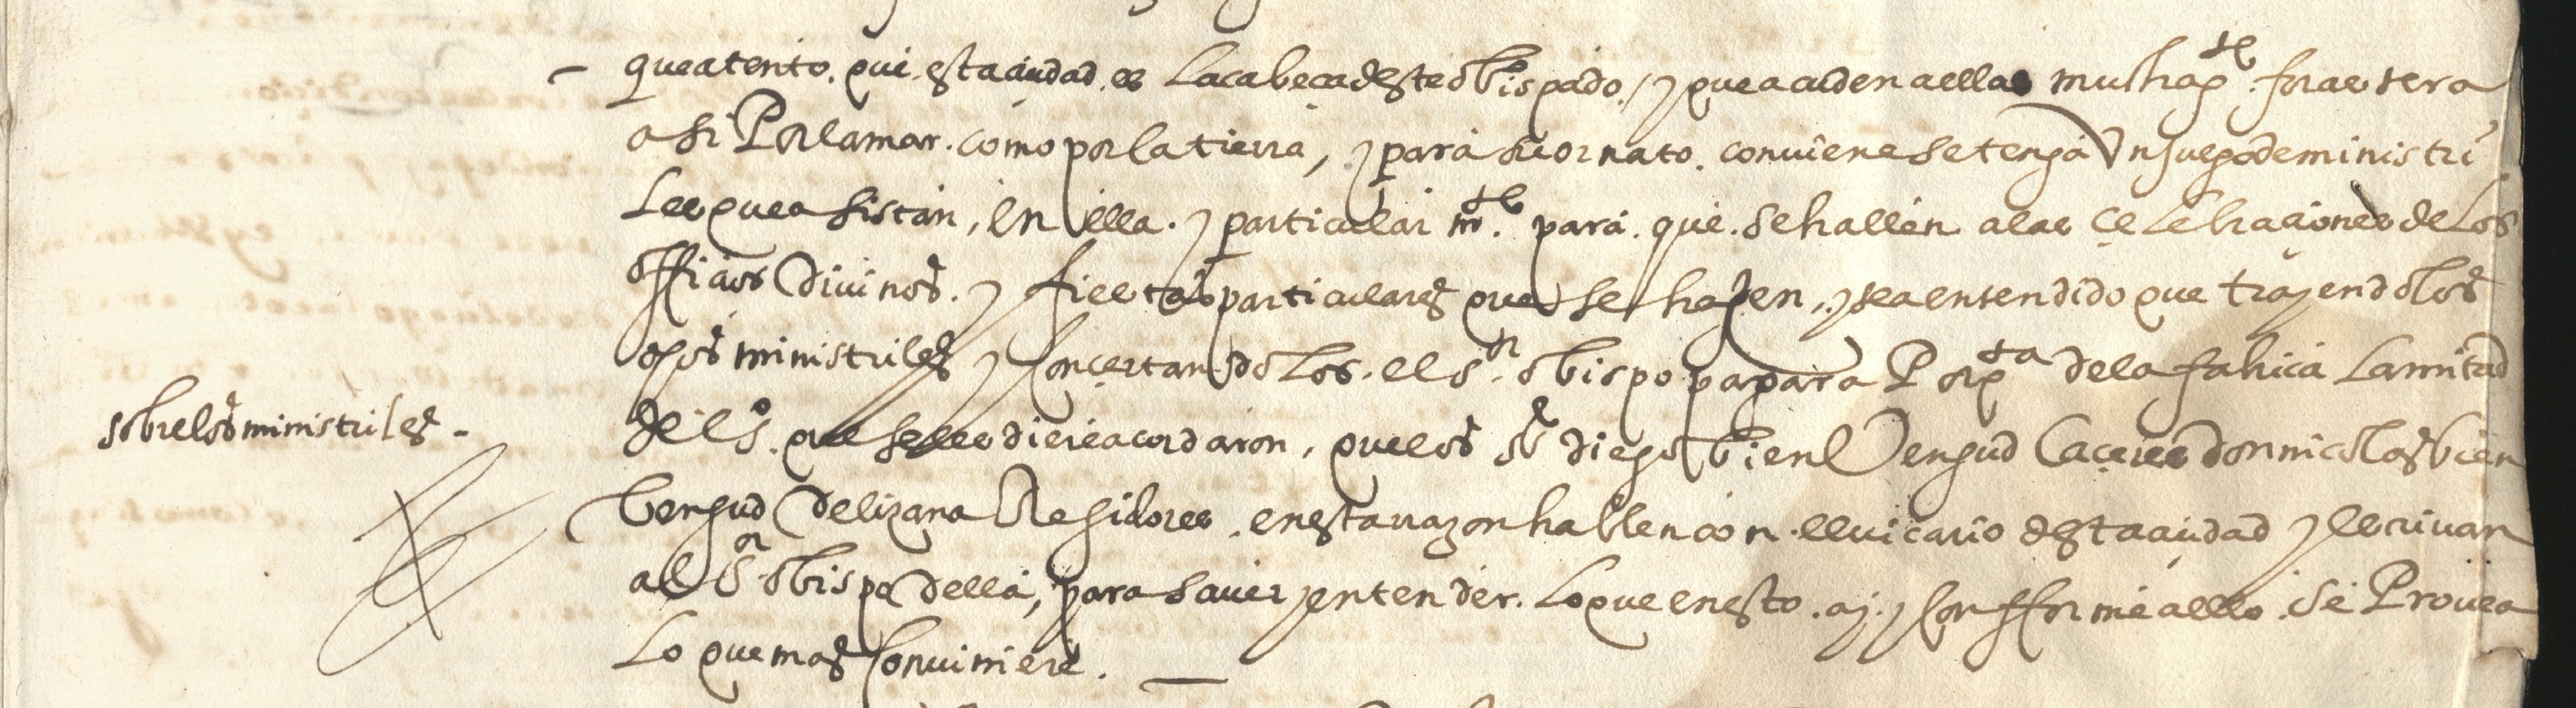 que atento. que. esta ciudad. es la cabeca deste obispado. / y que acuden a ellas mucha ge forastera
asi Por la mar. como por la tierra, y para su ornato. conviene se tenga Un juego de ministri
les que asistan, en ella. y particular mte. para. que. se hallen a las çelebraçiones de los
offiçios Divinos. y fiestas particulares que se hazen, y sea entendido que trayendolos
dhos ministriles y Conçertandolos. el sr. obispo pagara Por qta de la fabrica La mitad
del so. que se les diere acordaron, que los ss diego bienVengud Caçeres don nicolas bien
bengud De lizana Regidores. en esta razon hablen con. el vicario desta çiudad y escrivan
al Sr obispo Della, para saver y entender. Lo que en esto. ay. y Confforme a ello. se Provea
Lo que mas Conviniere.
sobre los ministriles -